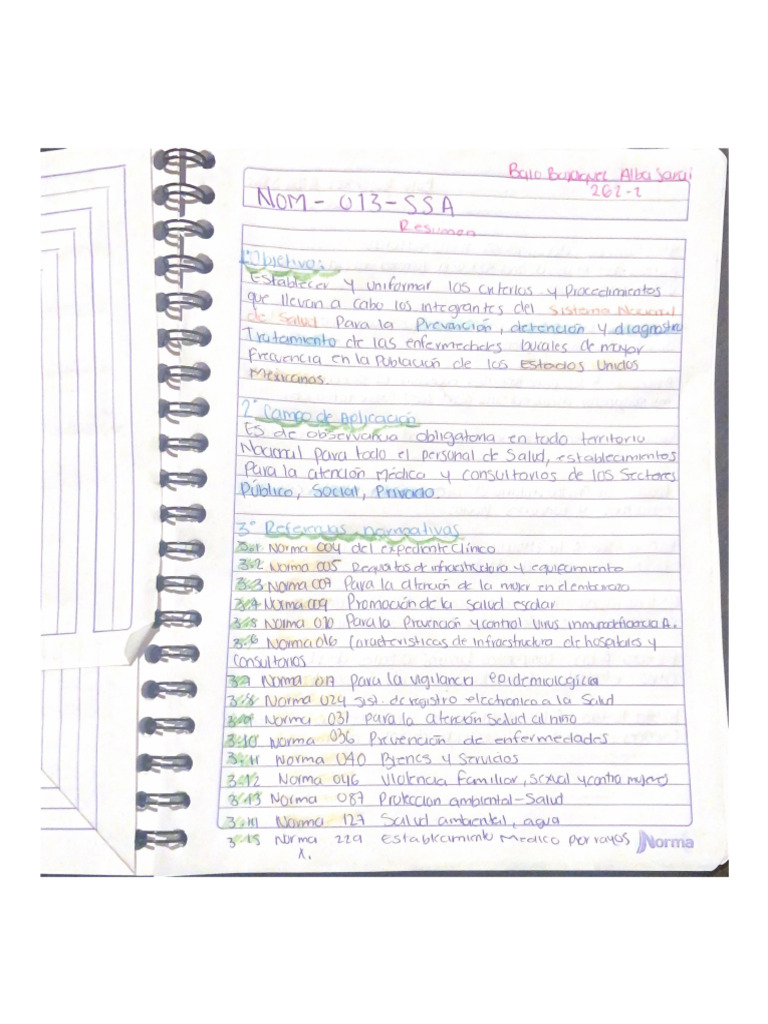 Alba Sarai
262-2
NOM - 013 - SSA
Resumen
1° Objetivo:
Establecer y uniformar los criterios y Procedimientos
que llevan a cabo los integrantes del Sistema Nacional
de Salud Para la Prevención, detención y diagnostic
Tratamiento de las enfermedades bucales de mayor
Frecuencia en la Población de los Estados Unidos
Mexicanos.
2° Campo de Aplicación
Es de observancia obligatoria en todo territorio
Nacional para todo el personal de Salud, establecimientos
Para la atención Médica y consultorios de los Sectores
Público, Social, Privado
3° Referencias normativas
3.1 Norma 004 del expediente Clínico
3.2 Norma 005 Requisitos de infraestructura y equipamiento
3.3 Norma 007 Para la atención de la mujer en el embarazo
3.4 Norma 009 Promoción de la salud escolar
3.5 Norma 010 Para la Prevención y control Virus inmunodificiencia A.
3.6 Norma 016 Características de infraestructura de hospitales y
consultorios
3.7 Norma 017 Para la vigilancia epidemiológica
3.8 Norma 024 sist. de registro electronico a la Salud
3.9 Norma 031 para la atención Salud al niño
3.10 Norma 036 Prevención de enfermedades
3.11 Norma 040 Bienes y Servicios
3.12 Norma 046 Violencia familiar, sexual y contra mujeres
3.13 Norma 087 Protección ambiental - Salud
3.14 Norma 127 Salud ambiental, agua
3.15 Norma 229 establecimiento Medico por rayos
x.
Norma